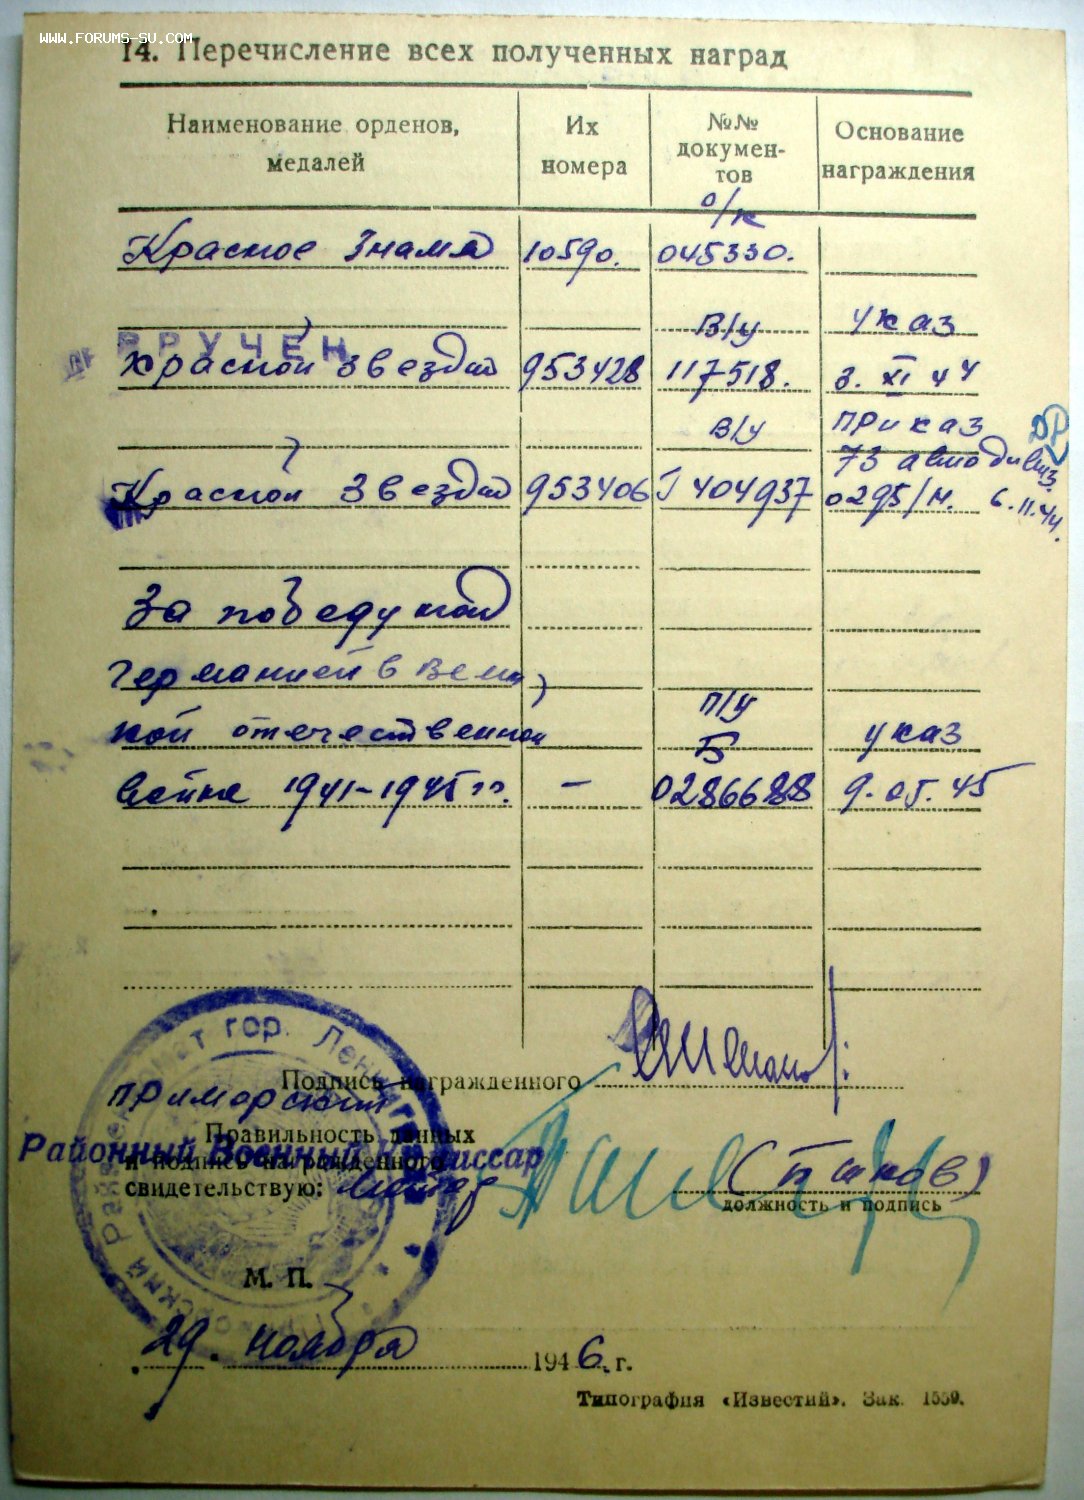 WWW.FORUMS-SU.COM
14. Перечисление всех полученных наград
Наименование орденов, медалей
Их номера
№№ докумен- тов
Основание награждения
о/к
Красное Знамя 10590. 045330.
В/У указ
ВРУЧЕН
Красной Звезды 953428 117518. 3. XI 44
В/У приказ
ДР
73 авиодивиз.
Красной Звезды 953406 Г 404937 0295/н. 6.11.44.
За победу над
Германией в Вели
П/У
кой отечественной Б указ
войне 1941-1945 гг. — 0286688 9.05.45
Подпись награжденного
Приморский
Правильность данных
Районный Военный Комиссар
и подпись награжденного
свидетельствую: майор
должность и подпись
гор. Ленинград
М. П.
29. ноября 1946. г.
Типография «Известий». Зак. 1559.